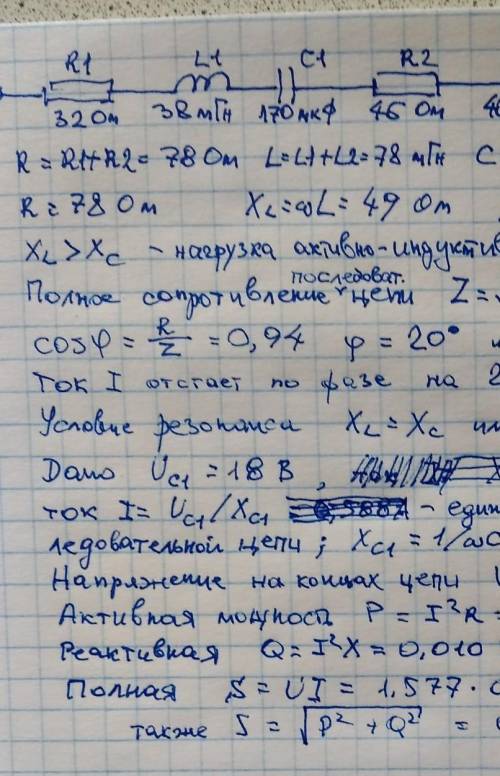 R1 L1 C1 R2
32 Ом 38 мГн 170 мкФ 46 Ом
R = R1+R2 = 78 Ом L = L1+L2 = 78 мГн C
R = 78 Ом XL = ωL = 49 Ом
XL > XC – нагрузка активно-индуктив
последоват.
Полное сопротивление цепи Z =
cosφ = R/Z = 0,94 φ = 20°
Ток I отстает по фазе на 2
Условие резонанса XL = XC
Дано UC1 = 18 В ,
ток I = UC1 / XC1 – един
ледовательной цепи ; XC1 = 1/ωC
Напряжение на концах цепи U
Активная мощность P = I²R =
Реактивная Q = I²X = 0,010
Полная S = UI = 1,577 · 0
также S = √P² + Q² =